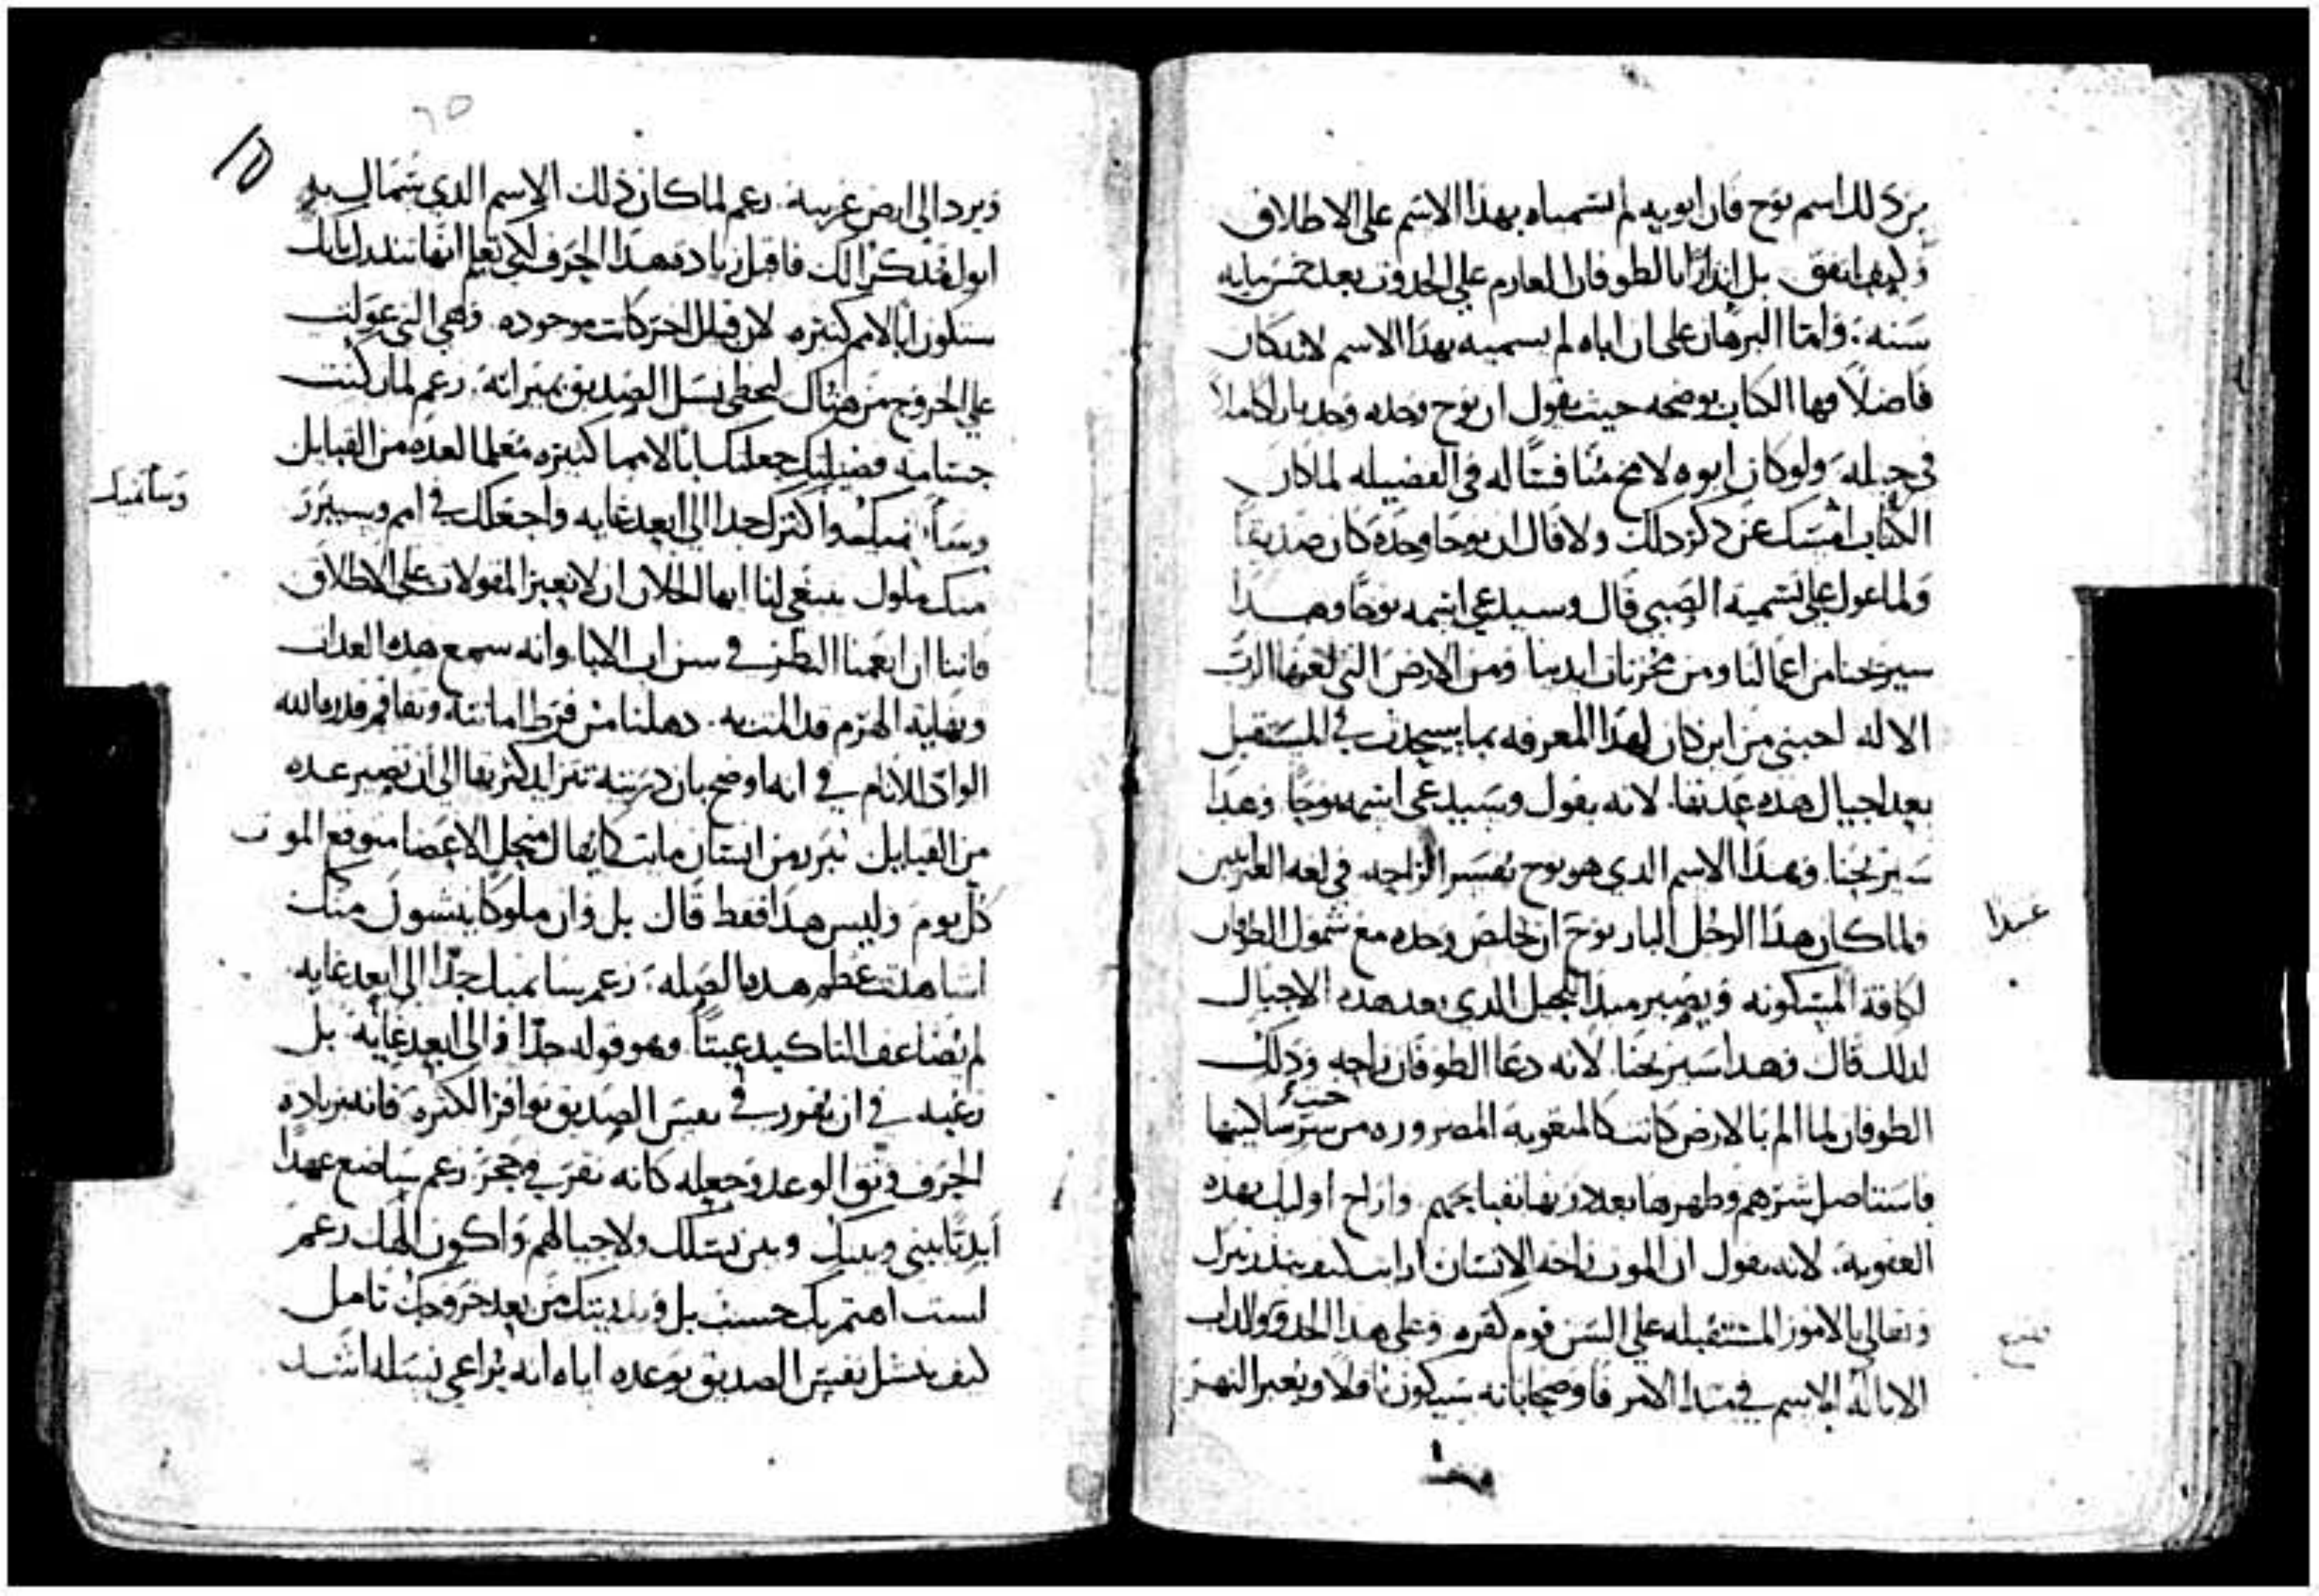 من ذلك اسم نوح فان ابويه لم تسمياه بهذا الاسم على الاطلاق
وكيف اتفق بل انذارًا بالطوفان العازم علي الحدوث بعد خمس مايه
سنه. واما البرهان على ان اباه لم يسميه بهذا الاسم لانه كان
فاضلًا فها الكتاب يوضحه حيث يقول ان نوح وحده وجد بارًا كاملًا
في جيله ولو كان ابوه لامخ مُنافسًا له في الفضيله لما كان
الكتاب امسك عن ذكر ذلك ولا قال ان نوحا وحده كان صديقًا
ولما عول على تسمية الصبي قال وسيدعي اسمه نوحًا وهـذا
سيريحنا من اعمالنا ومن محزنات ايدينا ومن الارض التي لعنها الرب
الاله اخبني من اين كان لهذا المعرفه بما سيحدث في المستقبل
بعد اجيال هذه عدتها. لانه يقول وسيدعي اسمه نوحًا وهذا
سيريحنا. وهذا الاسم الذي هو نوح تفسير الراحه في لغه العبرانيين
ولما كان هذا الرجل البار نوح ان يخلص وحده مع شمول الطوفان
لكافة المسكونه ويصير مبدا للجيل الذي بعد هذه الاجيال
لذلك قال وهذا سيريحنا. لانه دعا الطوفان راحه وذلك
الطوفان لما الم بالارض كانت كالمتعوبه المضروره من خبث شر ساكنيها
فاستاصل شرهم وطهرها بعد دربها بقبايحهم. واراح اوليك بهذه
العقوبة. لانه يقول ان الموت راحه الانسان ارايت كيف ينذر
تعالي بالامور المستقبله على السن قوم كفره وعلى هذا الحذو والداب
الاباله الاسم في مبدا الامر فاوضحا بانه سيكون ناقلا ويعبر النهر
عبدا
وهذا
ويرد الى ارض غريبة. زعم لما كان ذلك الاسم الذي سمالك به
ابواك تذكرا لك فاقبل زيادة هذا الحرف لكي تعلم انها تنذرك بانك
ستكون ابًا لامم كثيره. لان قبل الحركات موجوده. وهي التي عولت
علي الخروج من هناك ليحظى نسل الصديق بميراثه. زعم لما كنت
جسامة فضيلتك جعلتك ابًا لامم كثيره مُعلما لعده من القبايل
وسأنميك واكثرك جدا الى ابعد غايه واجعلك في امم وسيبرز
منك ملوك ينبغي لنا ايها الخلان ان لا نعبر المقولات على الاطلاق
فاننا ان انعمنا النظر في سن اب الابا وانه سمع هذه العدات
ونهاية الهرم قد المت به. دهلنا من فرط امانته وتفاقم قدره الله
الواد للانام في انه اوضح بان ذريته تتزايد كثرتها الى ان تصير عده
من القبايل تبرز من انسان مايت كما يقال منحل الاعضا متوقع الموت
كل يوم وليس هذا فقط قال بل وان ملوكًا ينسبون منك
اشاهدت عظم هذه الصله. زعم سانميك جدًا الى ابعد غايه
لم يُضاعف التاكيد عبثًا وهو قوله جدًا والى ابعد غايه. بل
رغبه في ان يقرر في نفس الصديق توافر الكثره فانه بزيادة
الحرف وثق الوعد وجعله كانه نقر في حجر. زعم ساضع عهدًا
أبديًا بيني وبينك وبين نسلك ولاجيالهم واكون الهك زعم
لست اهتم بك حسب بل وبذريتك من بعد خروجك تامل
كيف ينشل نفس الصديق بوعده اياه انه يُراعي نسله اشـد
وسأنميك